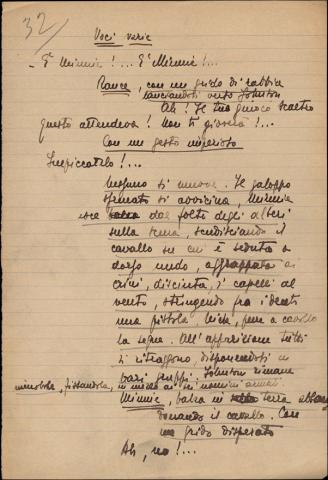 32/
Voci varie
- È Minnie! ... È Minnie! ...
Rance, con un grido di rabbia
lanciandosi verso Johnson
Ah! Il tuo giuoco scaltro
questo attendeva! Non ti gioverà! ...
Con un gesto imperioso
Impiccatelo! ...
Nessuno si muove. Il galoppo
sfrenato si avvicina, Minnie
esce dal folto degli alberi
sulla scena, scudisciando il
cavallo su cui è seduta a
dorso nudo, aggrappata ai
crini, discinta, i capelli al
vento, stringendo fra i denti
una pistola, Nick, pure a cavallo
la segue. All'apparizione tutti
si ritraggono disponendosi in
vari gruppi. Johnson rimane
immobile, fissandola, in mezzo ai sei uomini armati
Minnie, balza in terra abban
donando il cavallo. Con
un grido disperato
Ah, no! ...